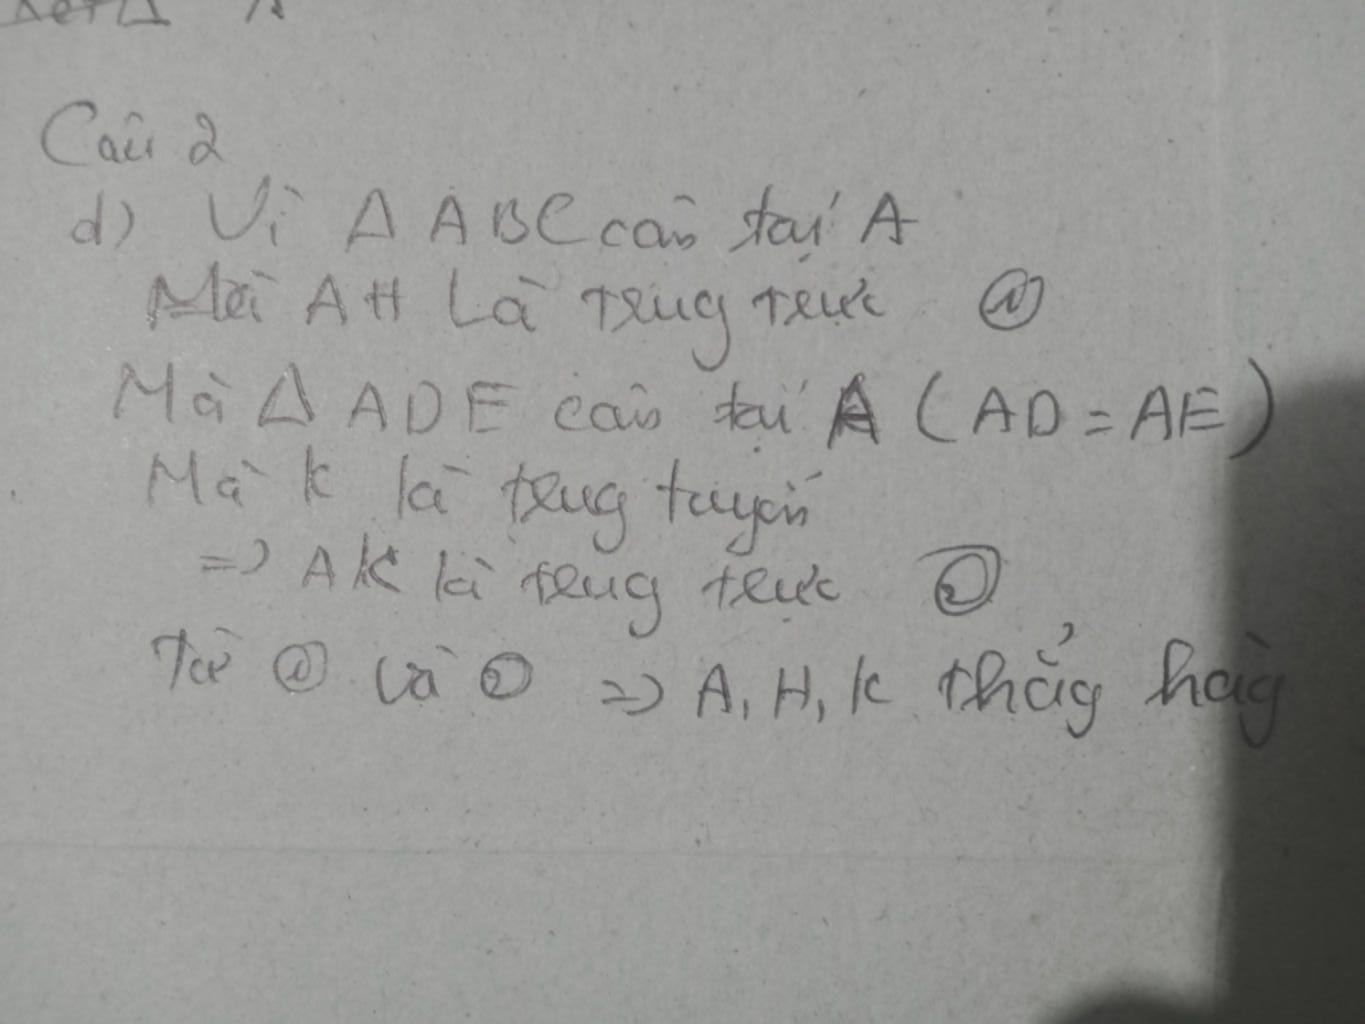 Câu 2
d) Vì Δ ABC cân tại A
Mà AH Là trug trực ①
Mà Δ ADE cân tại A (AD = AE)
Mà K là trug tuyến
=> AK là trug trực ②
Từ ① và ② => A, H, K thẳg hàg